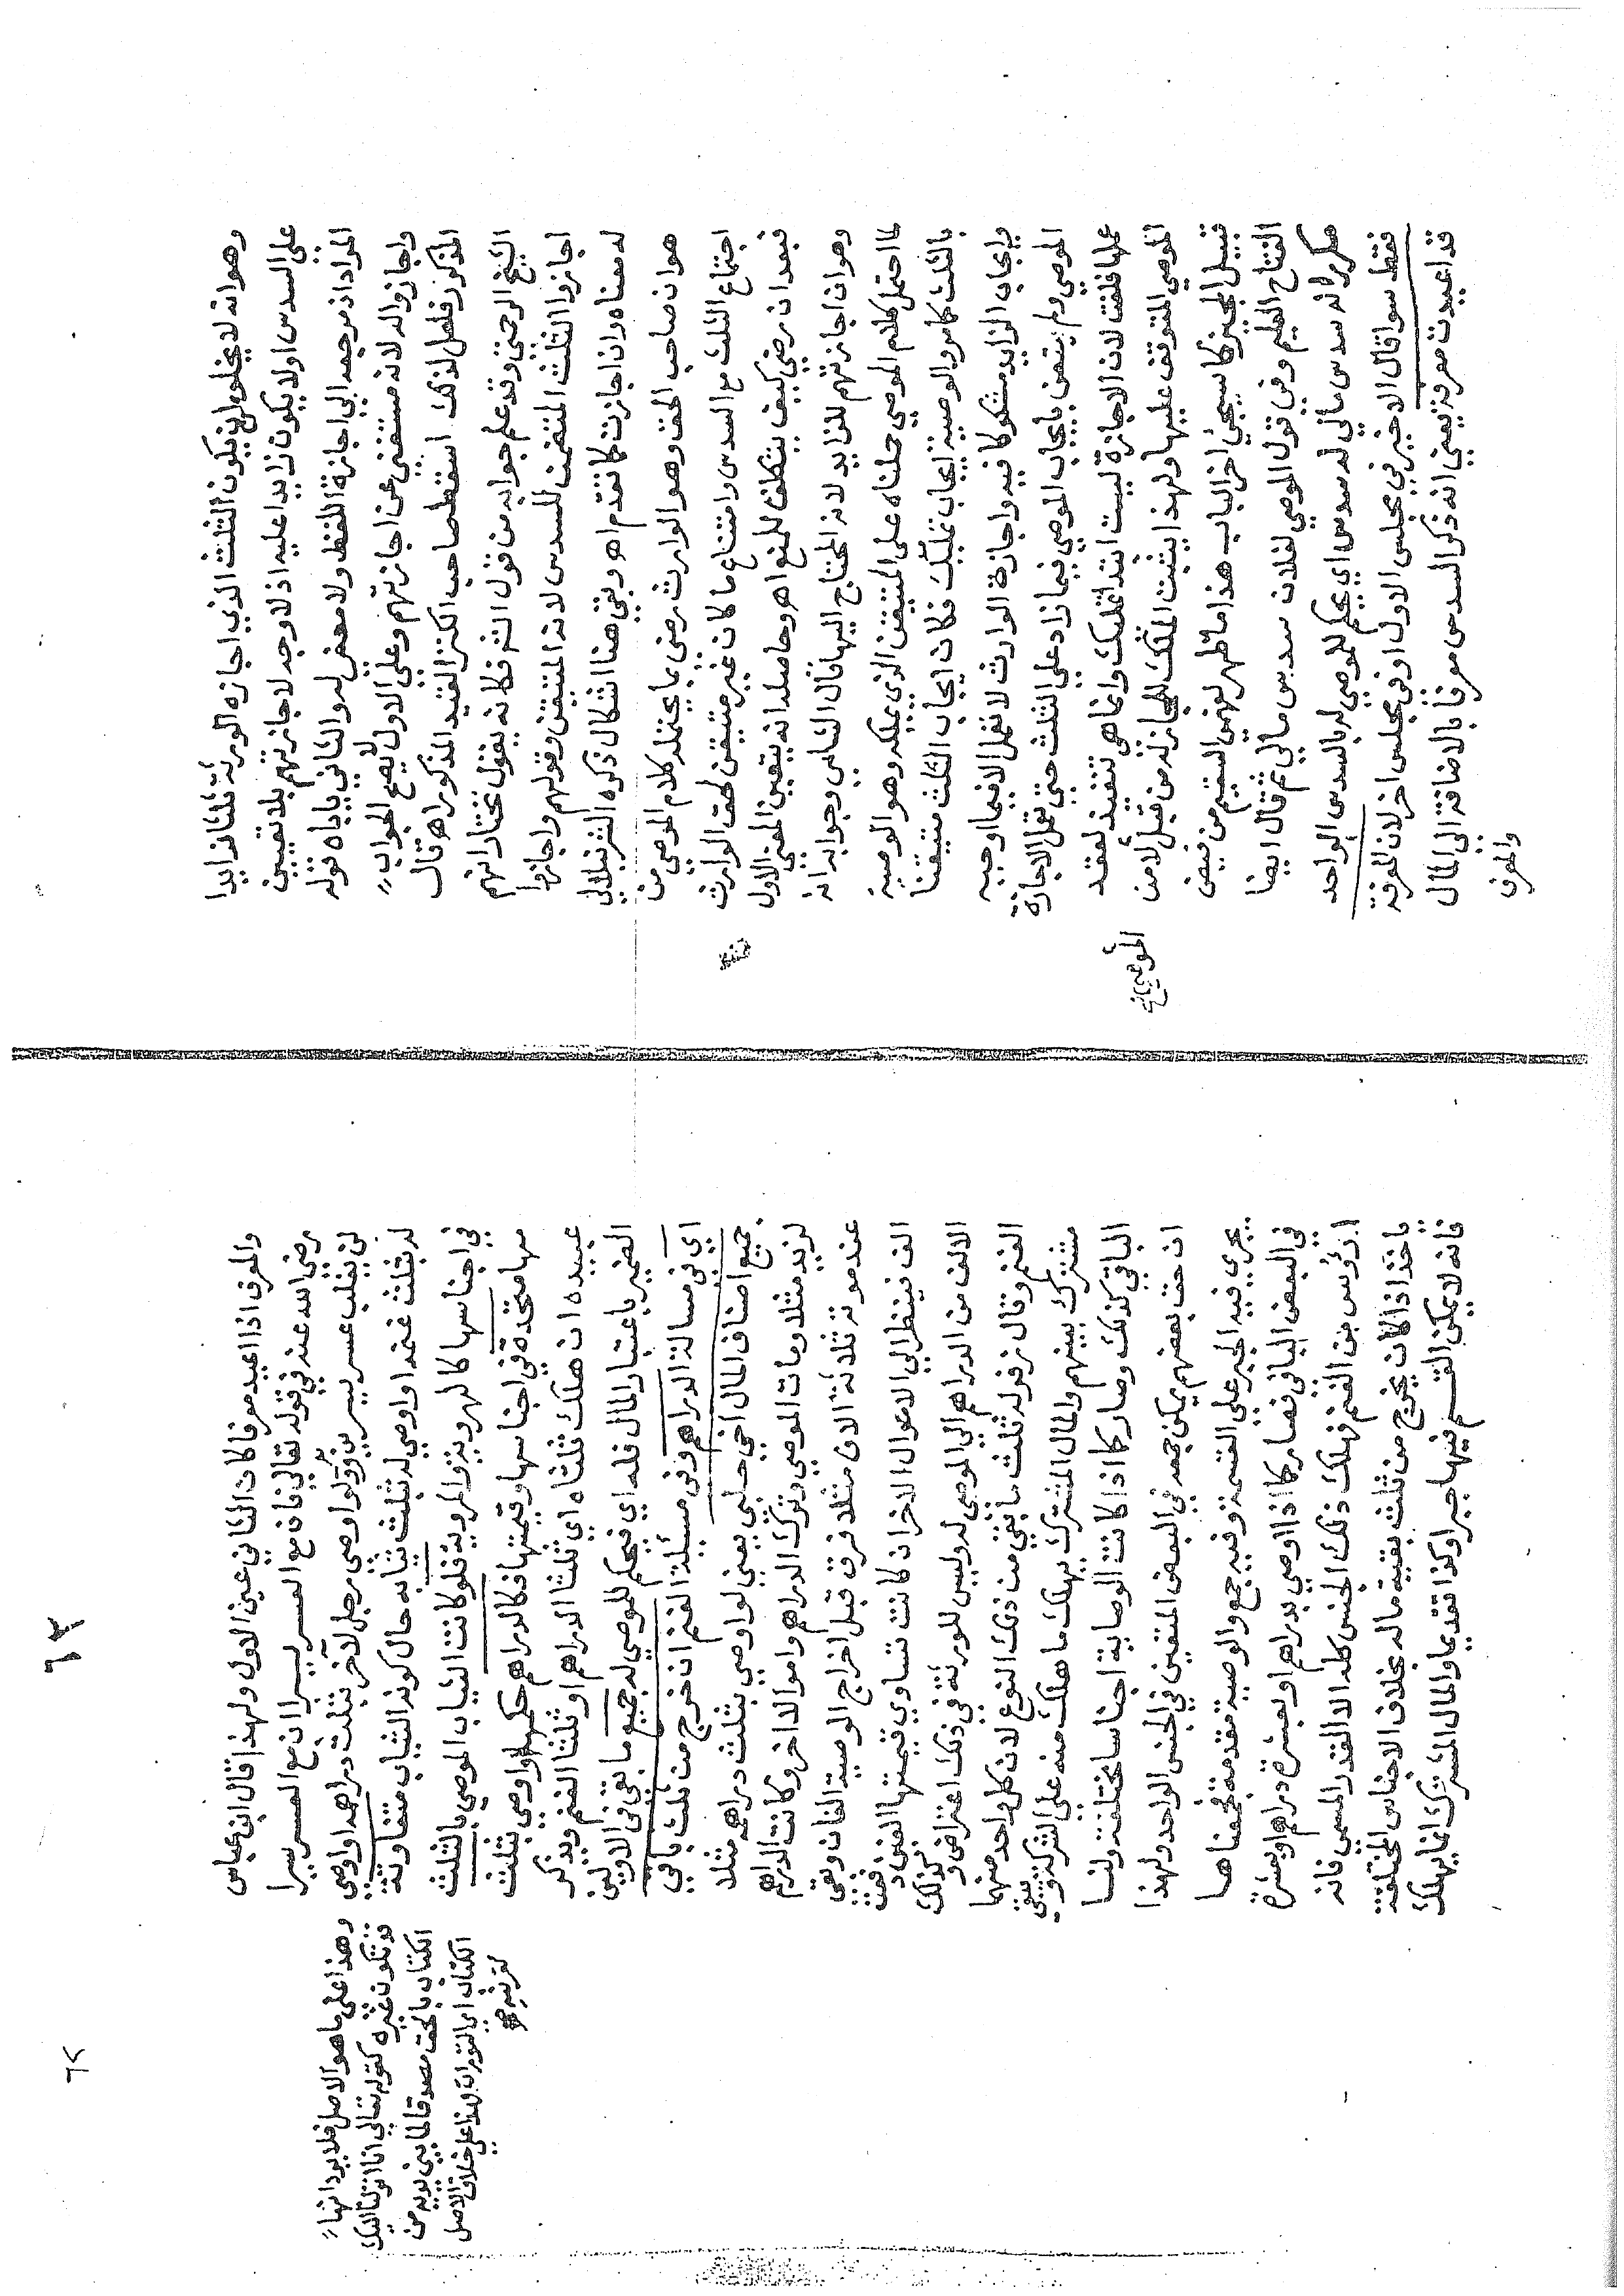 وهو انه لا يخلو من ان يكون الثلث الذي اجازه الورثة ثلثا زايدا
على السدس اولا يكون زايدا عليه اذ لا وجه لاجازتهم بلا تعيين
المراد اذ مرجعه الى اجازة اللفظ ولا معنى له والثاني ياباه قوله
واجازوا له لانه مستغني عن اجازتهم وعلى الاول لا يصح الجواب
المذكور فلعل لذلك اسقط صاحب الكنز القيد المذكور اهـ قال
الشيخ الرحمتي وقد علم جوابه من قول الشر فكانه يقول نختار انهم
اجازوا الثلث المتضمن للسدس لانه المتيقن وقولهم واجازوا
له معناه وان اجازت كما تقدم اهـ وبقي هنا اشكال ذكره الشرنبلالي
هو ان صاحب الحق وهو الوارث رضي بما يحتمله كلام الموصي من
اجتماع الثلث مع السدس وامتناع ما كان غير متيقن لحق الوارث
فبعد ان رضي كيف يتكلف للمنع اهـ وحاصله انه يتعين المعنى الاول
وهو ان اجازتهم للزايد لانه المحتاج اليها قال السايحاني وجوابه انه
لما احتمل كلام الموصي حملناه على المتيقن الذي يملكه وهو الوصية
بالثلث كما مر والوصية ايجاب تمليك فكان ايجاب الثلث متيقنا
وايجاب الزايد مشكوكا فيه واجازة الوارث لا تعمل الا فيما اوجبه
الموصي ولم يتيقن بايجاب الموصي فيما زاد على الثلث حتى تعمل الاجازة
عملها فلغت لان الاجازة ليست ابتدا تمليك وانما هي تنفيذ لعقد
الموصي المتوقف عليها ولهذا يثبت الملك للمجاز له من قبل الموصي لا من
قبل المجيز كما سيجي اخر الباب هذا ما ظهر لفهمي السقيم من فيض
الفتاح العليم وفي قول الموصي لفلان سدس مالي ثم قال ايضا
مكررا له سدس مالي له سدس اي يحكم للموصي له بالسدس الواحد
فقط سوا قال الاخير في مجلس الاول او في مجلس اخر لان المعرفة
قد اعيدت معرفة يعني انه ذكر السدس معرفا بالاضافة الى المال
والمعرف
الموصي
٦٢
والمعرف اذا اعيد معرفا كان الثاني عين الاول ولهذا قال ابن عباس
رضي الله عنه في قوله تعالى فان مع العسر يسرا ان مع العسر يسرا
لن يغلب عسر يسرين ولو اوصى رجل لآخر بثلث دراهمه او اوصى
له بثلث غنمه او اوصى له بثلث ثيابه حال كونه الثياب متفاوتة
في اجناسها كالهروية والمروية فلو كانت الثياب الموصي بالثلث
منها متحدة في اجناسها وقيمتها فكالدراهم حكمها او اوصى بثلث
عبيده ان هلك ثلثاه اي ثلثا الدراهم او ثلثا الغنم ويذكر
الضمير باعتبار المال فله اي فيحكم للموصي له جميع ما بقي في الاوليين
اي في مسالة الدراهم وفي مسيلة الغنم ان خرج من ثلث باقي
جميع اصناف المال اخي حلبي يعني لو اوصى بثلث دراهمه مثلا
لزيد مثلا ومات الموصي وترك الدراهم واموالا اخر وكانت الدراهم
عند موته ثلاثة الاف مثلا فرق قبل اخراج الوصية الفان وبقي
الف فينظر الى الاموال الاخر ان كانت تساوي قيمتها الفين دفعت
الالف من الدراهم الى الموصى له وليس للورثة في ذلك اعتراض وكذلك
الغنم وقال زفر له ثلث ما بقي من ذلك النوع لان كل واحد منهما
مشترك بينهم والمال المشترك يهلك ما هلك منه على الشركة ويبقى
الباقي كذلك وصار كما اذا كانت الوصاية اجناسا مختلفة ولنا
ان حق بعضهم يمكن جمعه في البعض المتعين في الجنس الواحد ولهذا
يجري فيه الجبر على القسمة وفيه جمع والوصية مقدمة فجمعناها
في البعض الباقي فصار كما اذا اوصى بدراهم او بعشرة دراهم او بعشرة
ارؤس من الغنم فهلك ذلك الجنس كله الا القدر المسمى فانه
ياخذ اذا كان يخرج من ثلث بقية ماله بخلاف الاجناس المختلفة
فانه لا يمكن القسم فيها جبرا وكذا تقديما والمال المشترك انما يهلك
وهذا على ما هو الاصل فلا يرد انها
قد تكون غيره كقوله تعالى انا انزلنا اليك
الكتاب بالحق مصدقا لما بين يديه من
الكتاب اي التوراة لهذا على خلاف الاصل
لقرينة
٦٢